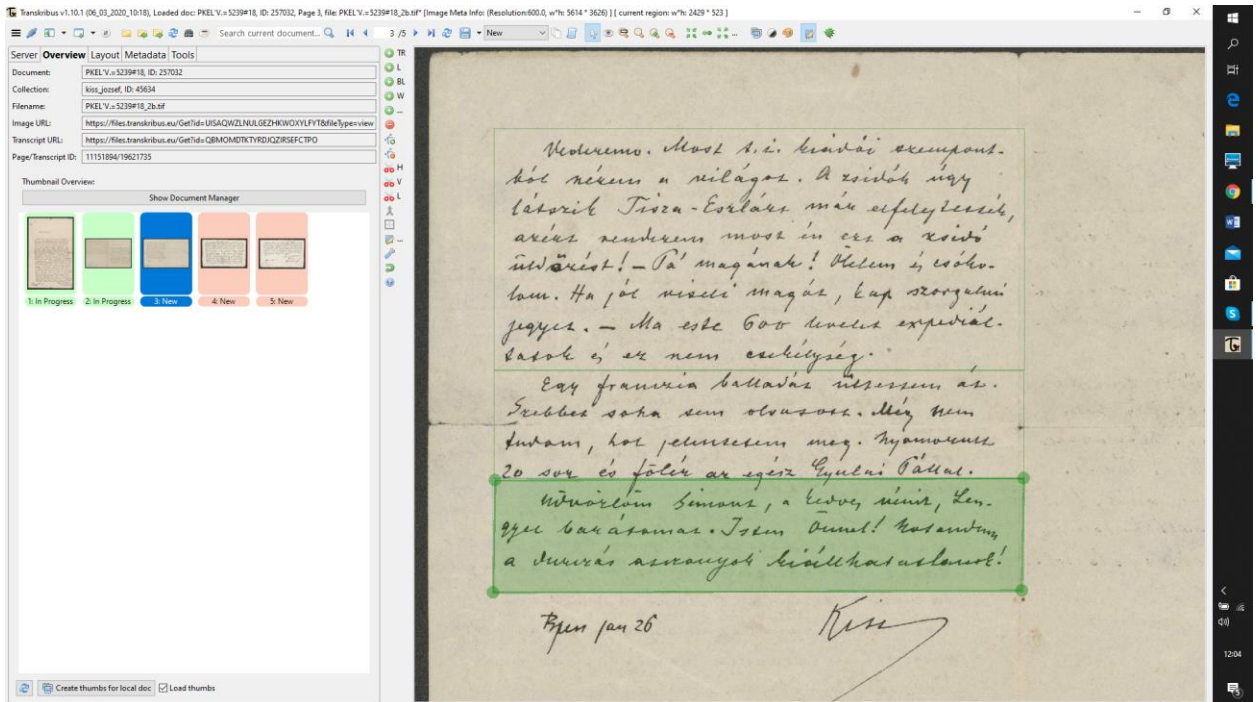 Transkribus v1.10.1 (06_03_2020_10:18), Loaded doc: PKEL'V.=5239#18, ID: 257032, Page 3, file: PKEL'V.=5239#18_2b.tif* [Image Meta Info: (Resolution:600.0, w*h: 5614 * 3626) ] [ current region: w*h: 2429 * 523 ]
Search current document... 3 /5 New
Server Overview Layout Metadata Tools
Document: PKEL'V.=5239#18, ID: 257032
Collection: kiss_jozsef, ID: 45634
Filename: PKEL'V.=5239#18_2b.tif
Image URL: https://files.transkribus.eu/Get?id=UISAQWZLNULGEZHKWOXYLFYT&fileType=view
Transcript URL: https://files.transkribus.eu/Get?id=QBMOMDTKTYRDJQZIRSEFCTPO
Page/Transcript ID: 11151894/19621735
Thumbnail Overview:
Show Document Manager
1: In Progress 2: In Progress 3: New 4: New 5: New
Create thumbs for local doc Load thumbs
TR
L
BL
W
...
H
V
L
...
Vederemo. Most t.i. kiadói szempont-
ból nézem a világot. A zsidók úgy
látszik Tisza-Eszlárt már elfelejtették,
azért rendezem most én ezt a zsidó
üldözést! – Pá magának! Ölelem és csóko-
lom. Ha jól viseli magát, kap szorgalmi
jegyet. – Ma este 600 levelet expediál-
tatok és ez nem csekélység.
Egy franczia balladát ültettem át.
Szebbet soha sem olvasott. Még nem
tudom, hol jelentetem meg. Nyomorult
20 sor és fölér az egész Gyulai Pállal.
Üdvözlöm Simont, a kedves nénit, Len-
gyel barátomat. Isten Önnel!
a asszonyok kiállhatatlanok!
Bpest jan 26 Kiss
12:04